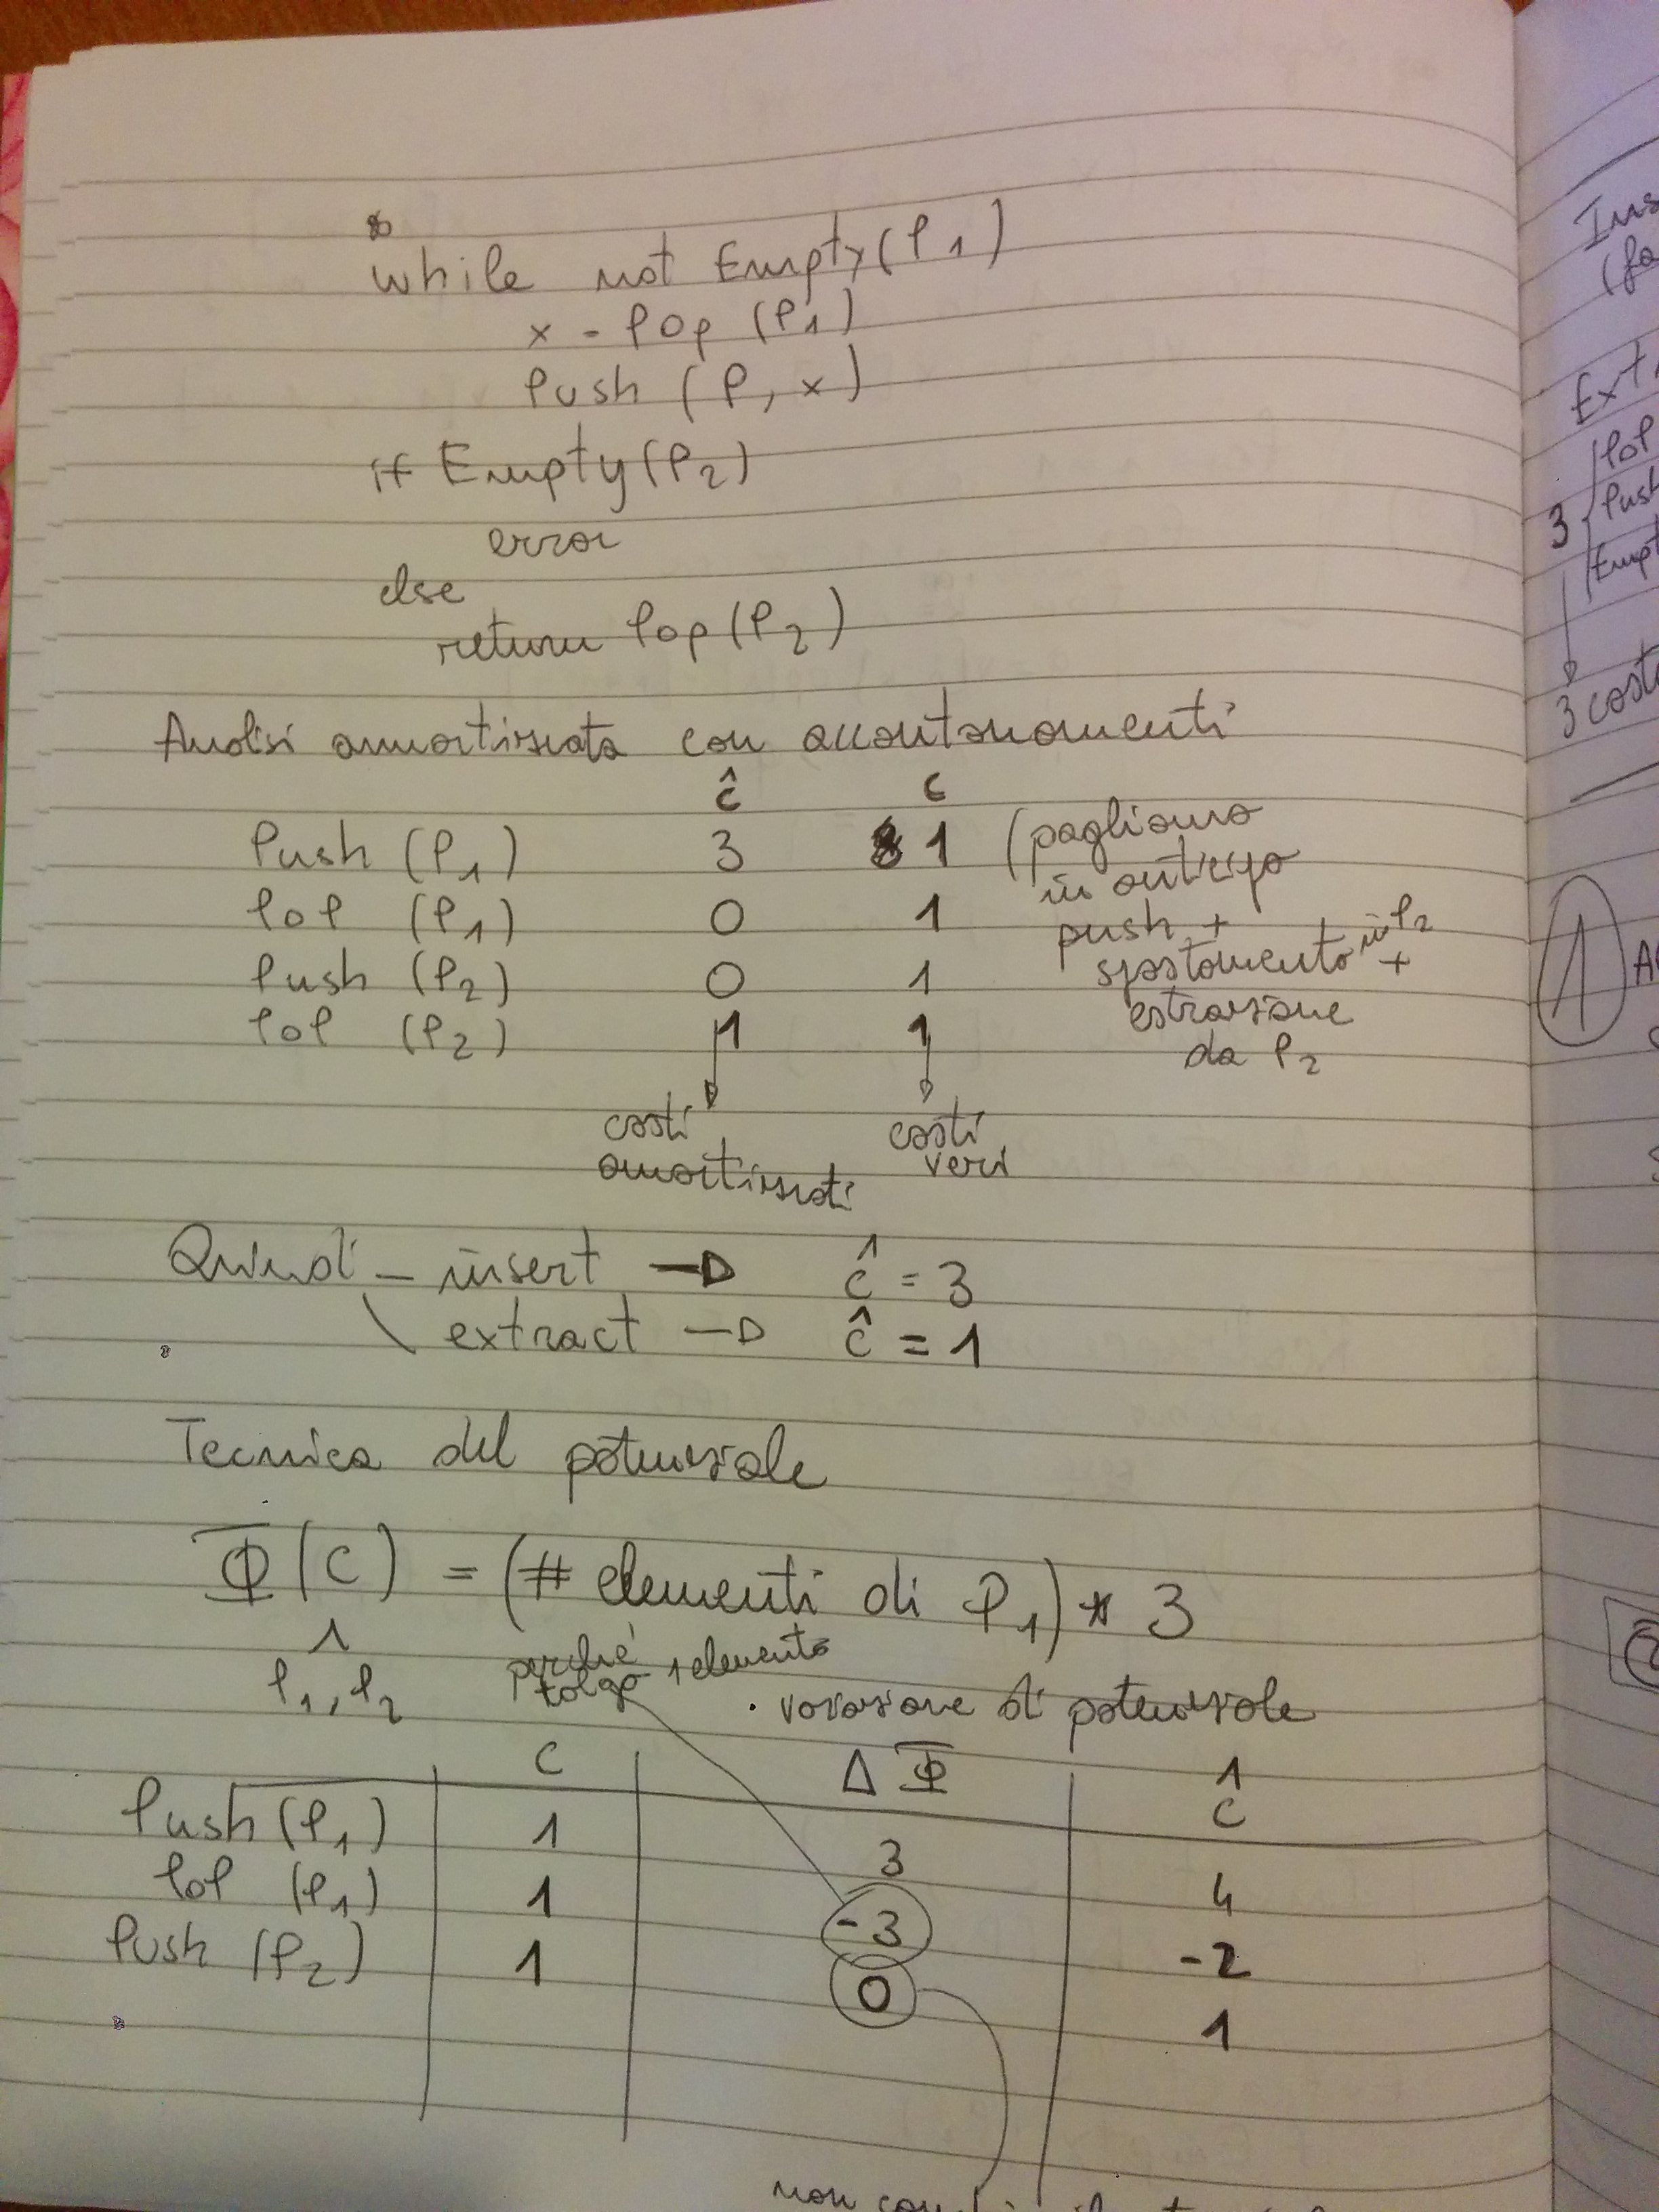 while not Empty(P1)
x - Pop (P1)
Push (P, x)
if Empty(P2)
error
else
return Pop(P2)
Analisi ammortizzata con accantonamenti
ĉ c
Push (P1) 3 1 (paghiamo
in anticipo
Pop (P1) 0 1 push +
Push (P2) 0 1 spostamento in P2 +
Pop (P2) 1 1 estrazione
da P2
costi costi
ammortizzati veri
Quindi - insert → ĉ = 3
\ extract → ĉ = 1
Tecnica del potenziale
Φ(C) = (# elementi di P1) * 3
P1, P2
perché
tolgo 1 elemento
. variazione di potenziale
C ΔΦ ĉ
Push (P1) 1 3 4
Pop (P1) 1 -3 -2
Push (P2) 1 0 1
non
Ins
(fa
Ext
Pop
3 Push
Empt
3 cost
1